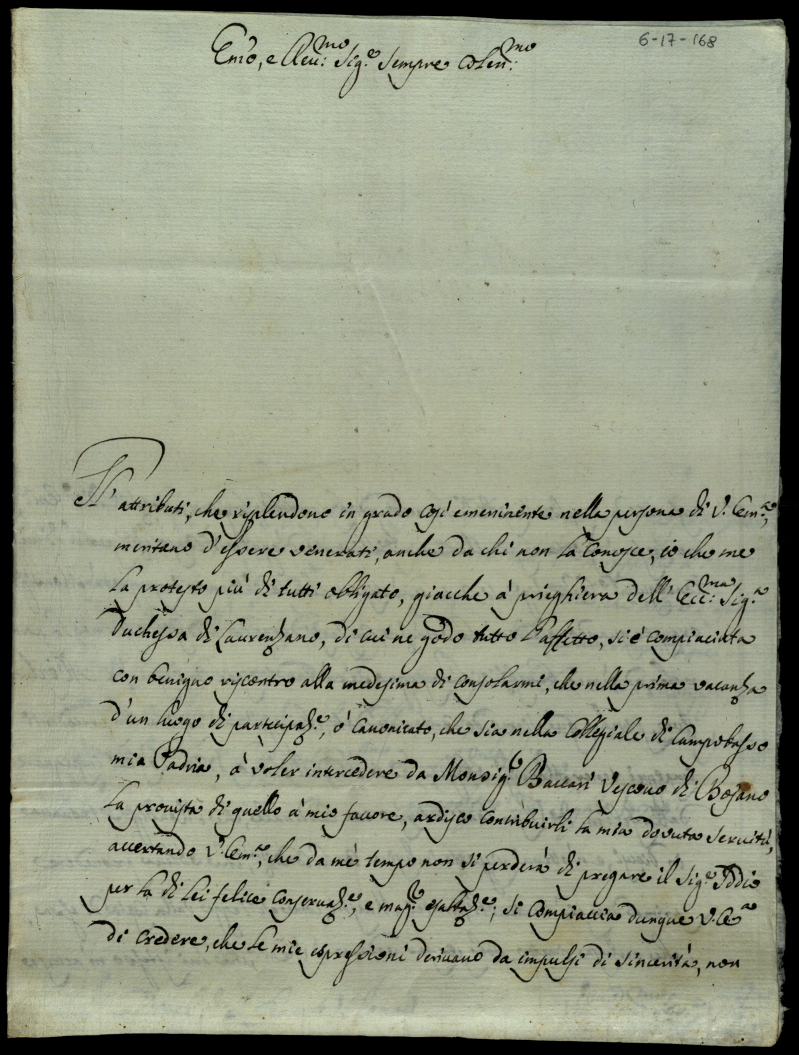 6-17-168
Emo, e Reu:mo Sig.e Sempre Colen:mo
Gl' attributi, che risplendono in grado così emeninente nella persona di V. Em.a,
meritano d'essere venerati, anche da chi non la conosce, io che me
la protesto più di tutti obbligato, giacche à prieghiera dell' Ecc:ma Sig.a
Duchessa di Laurenzano, di cui ne godo tutto l'affetto, si è compiaciuta
con benigno riscontro alla medesima di consolarmi, che nella prima vacanza
d'un luogo di participaz.e, ò Canonicato, che sia nella Collegiale di Campobasso
mia Padria, à voler intercedere da Monsig.r Baccari Vescovo di Bojano
la provista di quello à mio favore, ardisco contribuirli la mia dovuta servitù,
accertando V. Em.a, che da mè tempo non si perderà di pregare il Sig.e Iddio
per la di Lei felice conservaz.e, e mag.r esaltaz.e; si compiaccia dunque V. E.a
di credere, che le mie espressioni derivano da impulsi di sincerità, non